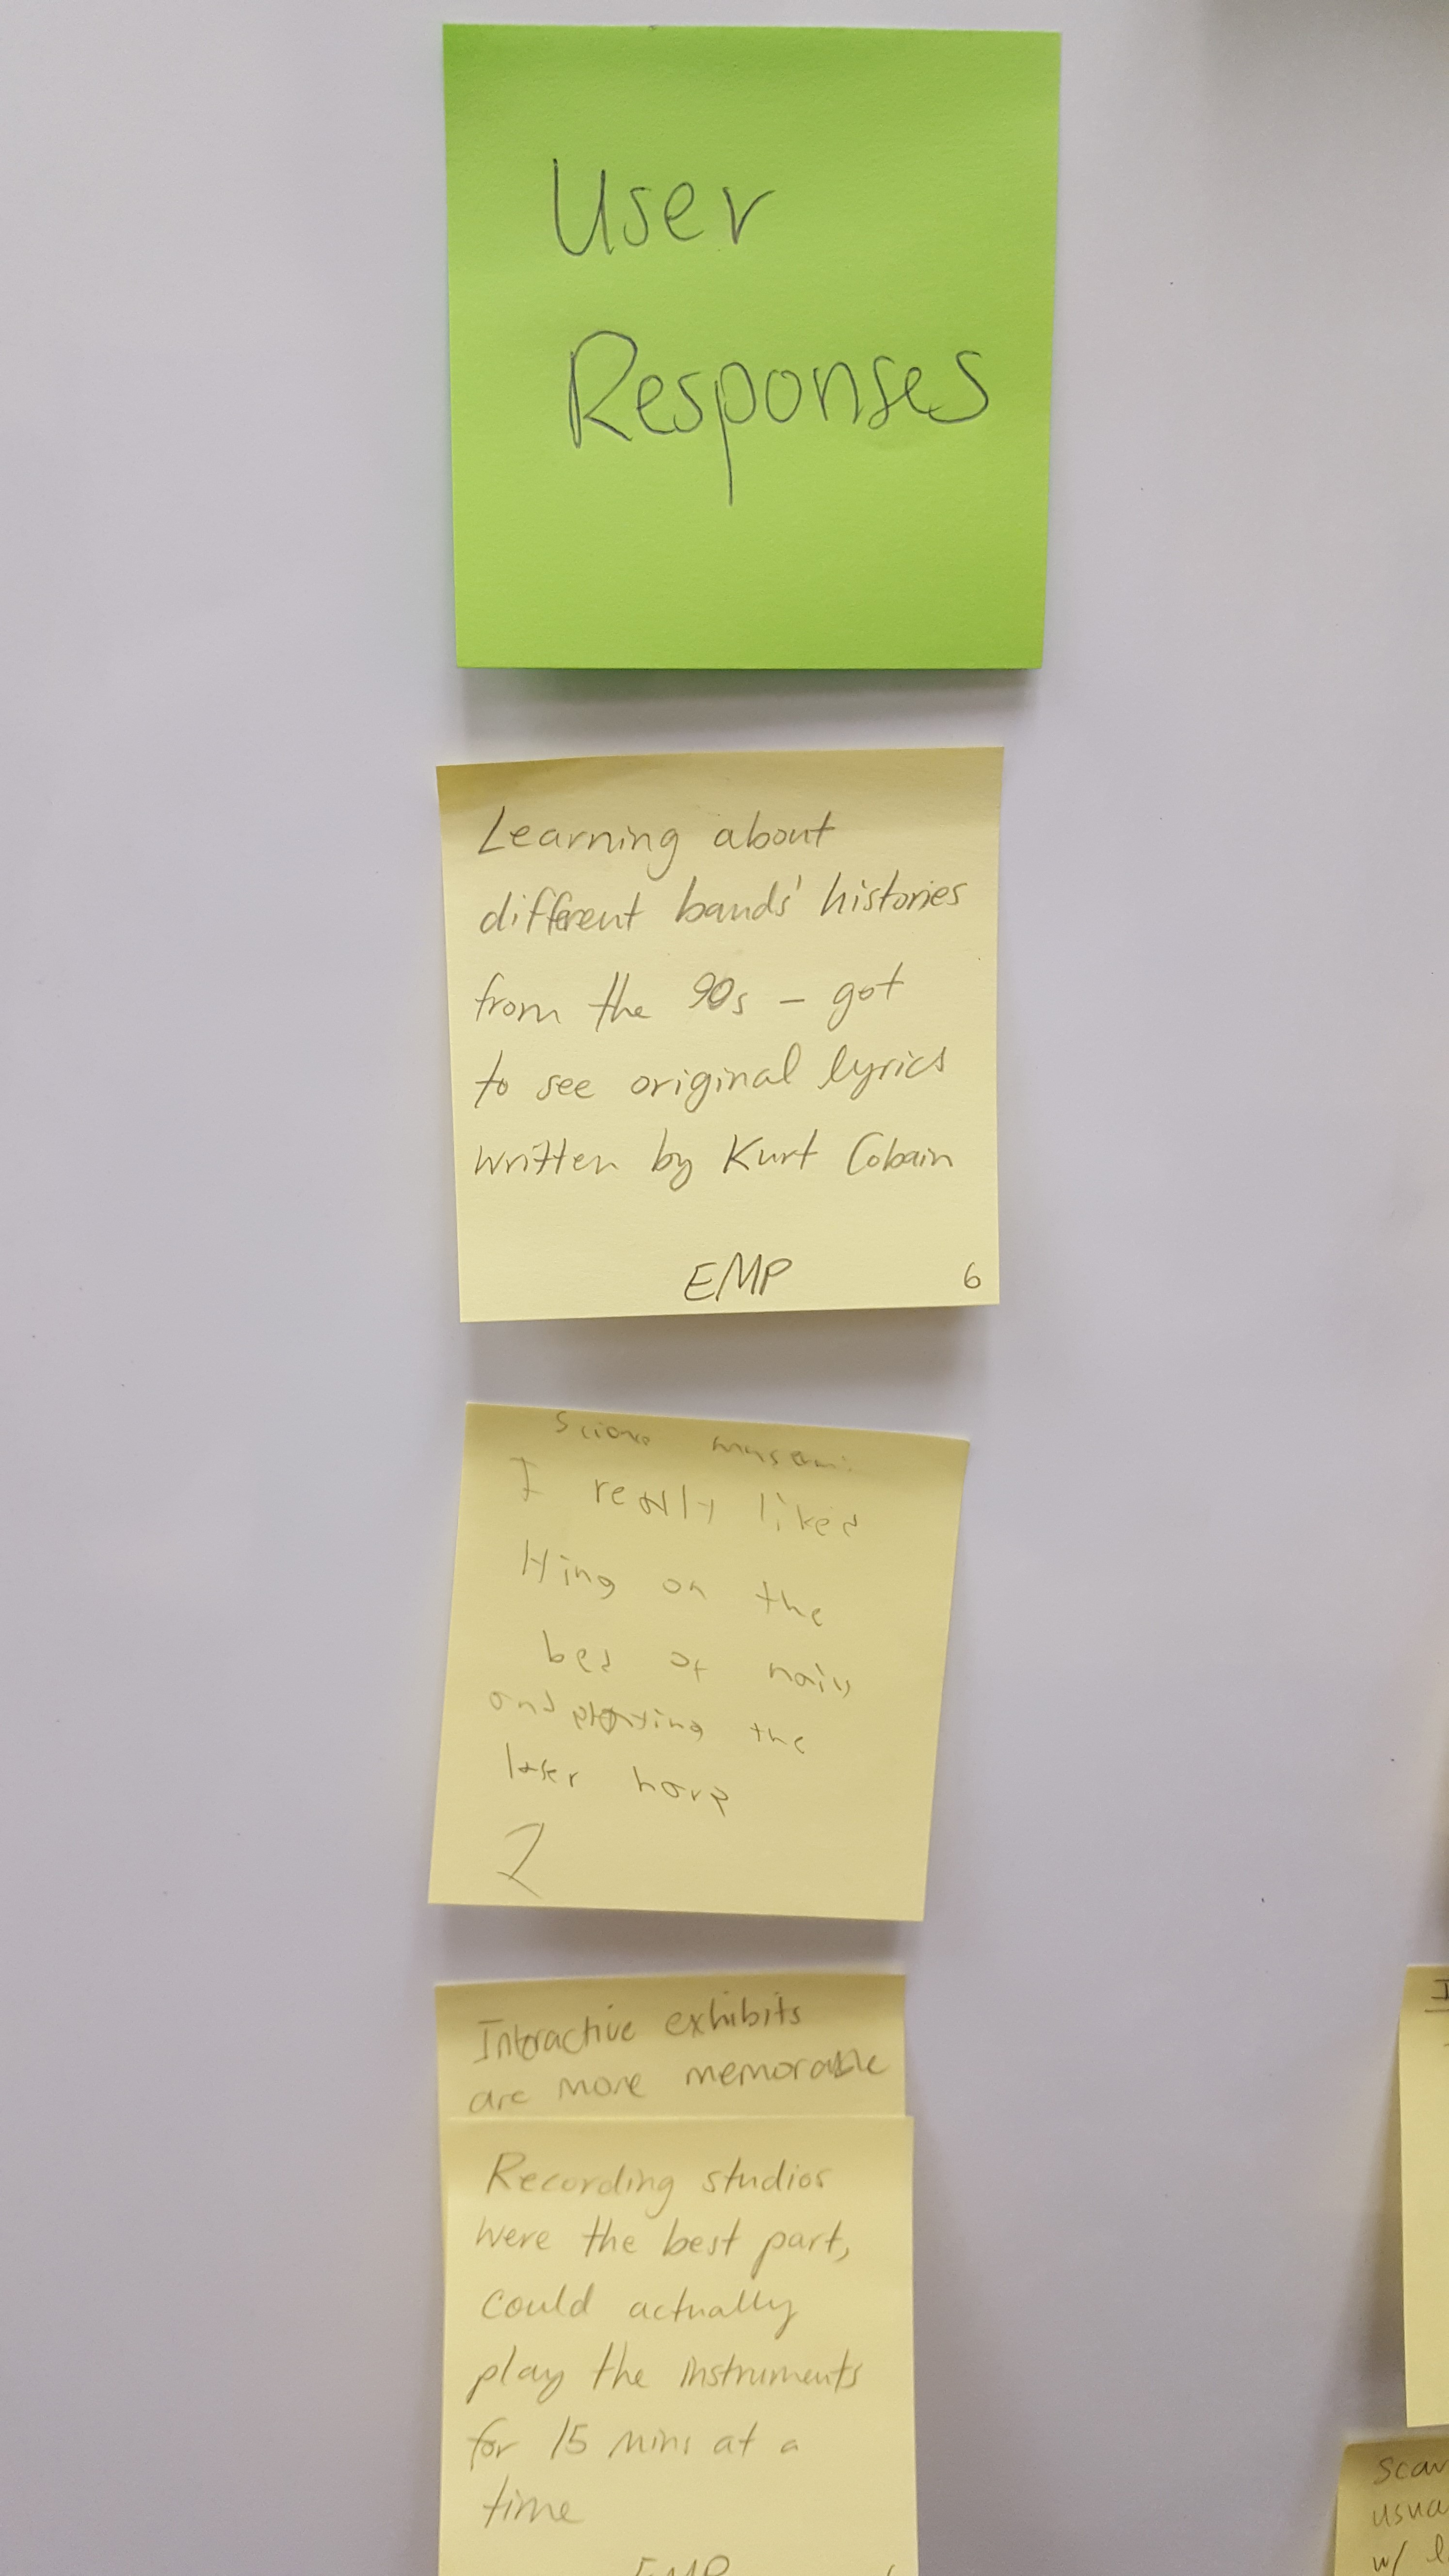 User
Responses
Learning about
different bands' histories
from the 90s – got
to see original lyrics
written by Kurt Cobain
EMP 6
I really liked
lying on the
bed of nails
and playing the
laser harp
2
Interactive exhibits
are more memorable
Recording studios
were the best part,
could actually
play the instruments
for 15 mins at a
time
EMP
w/